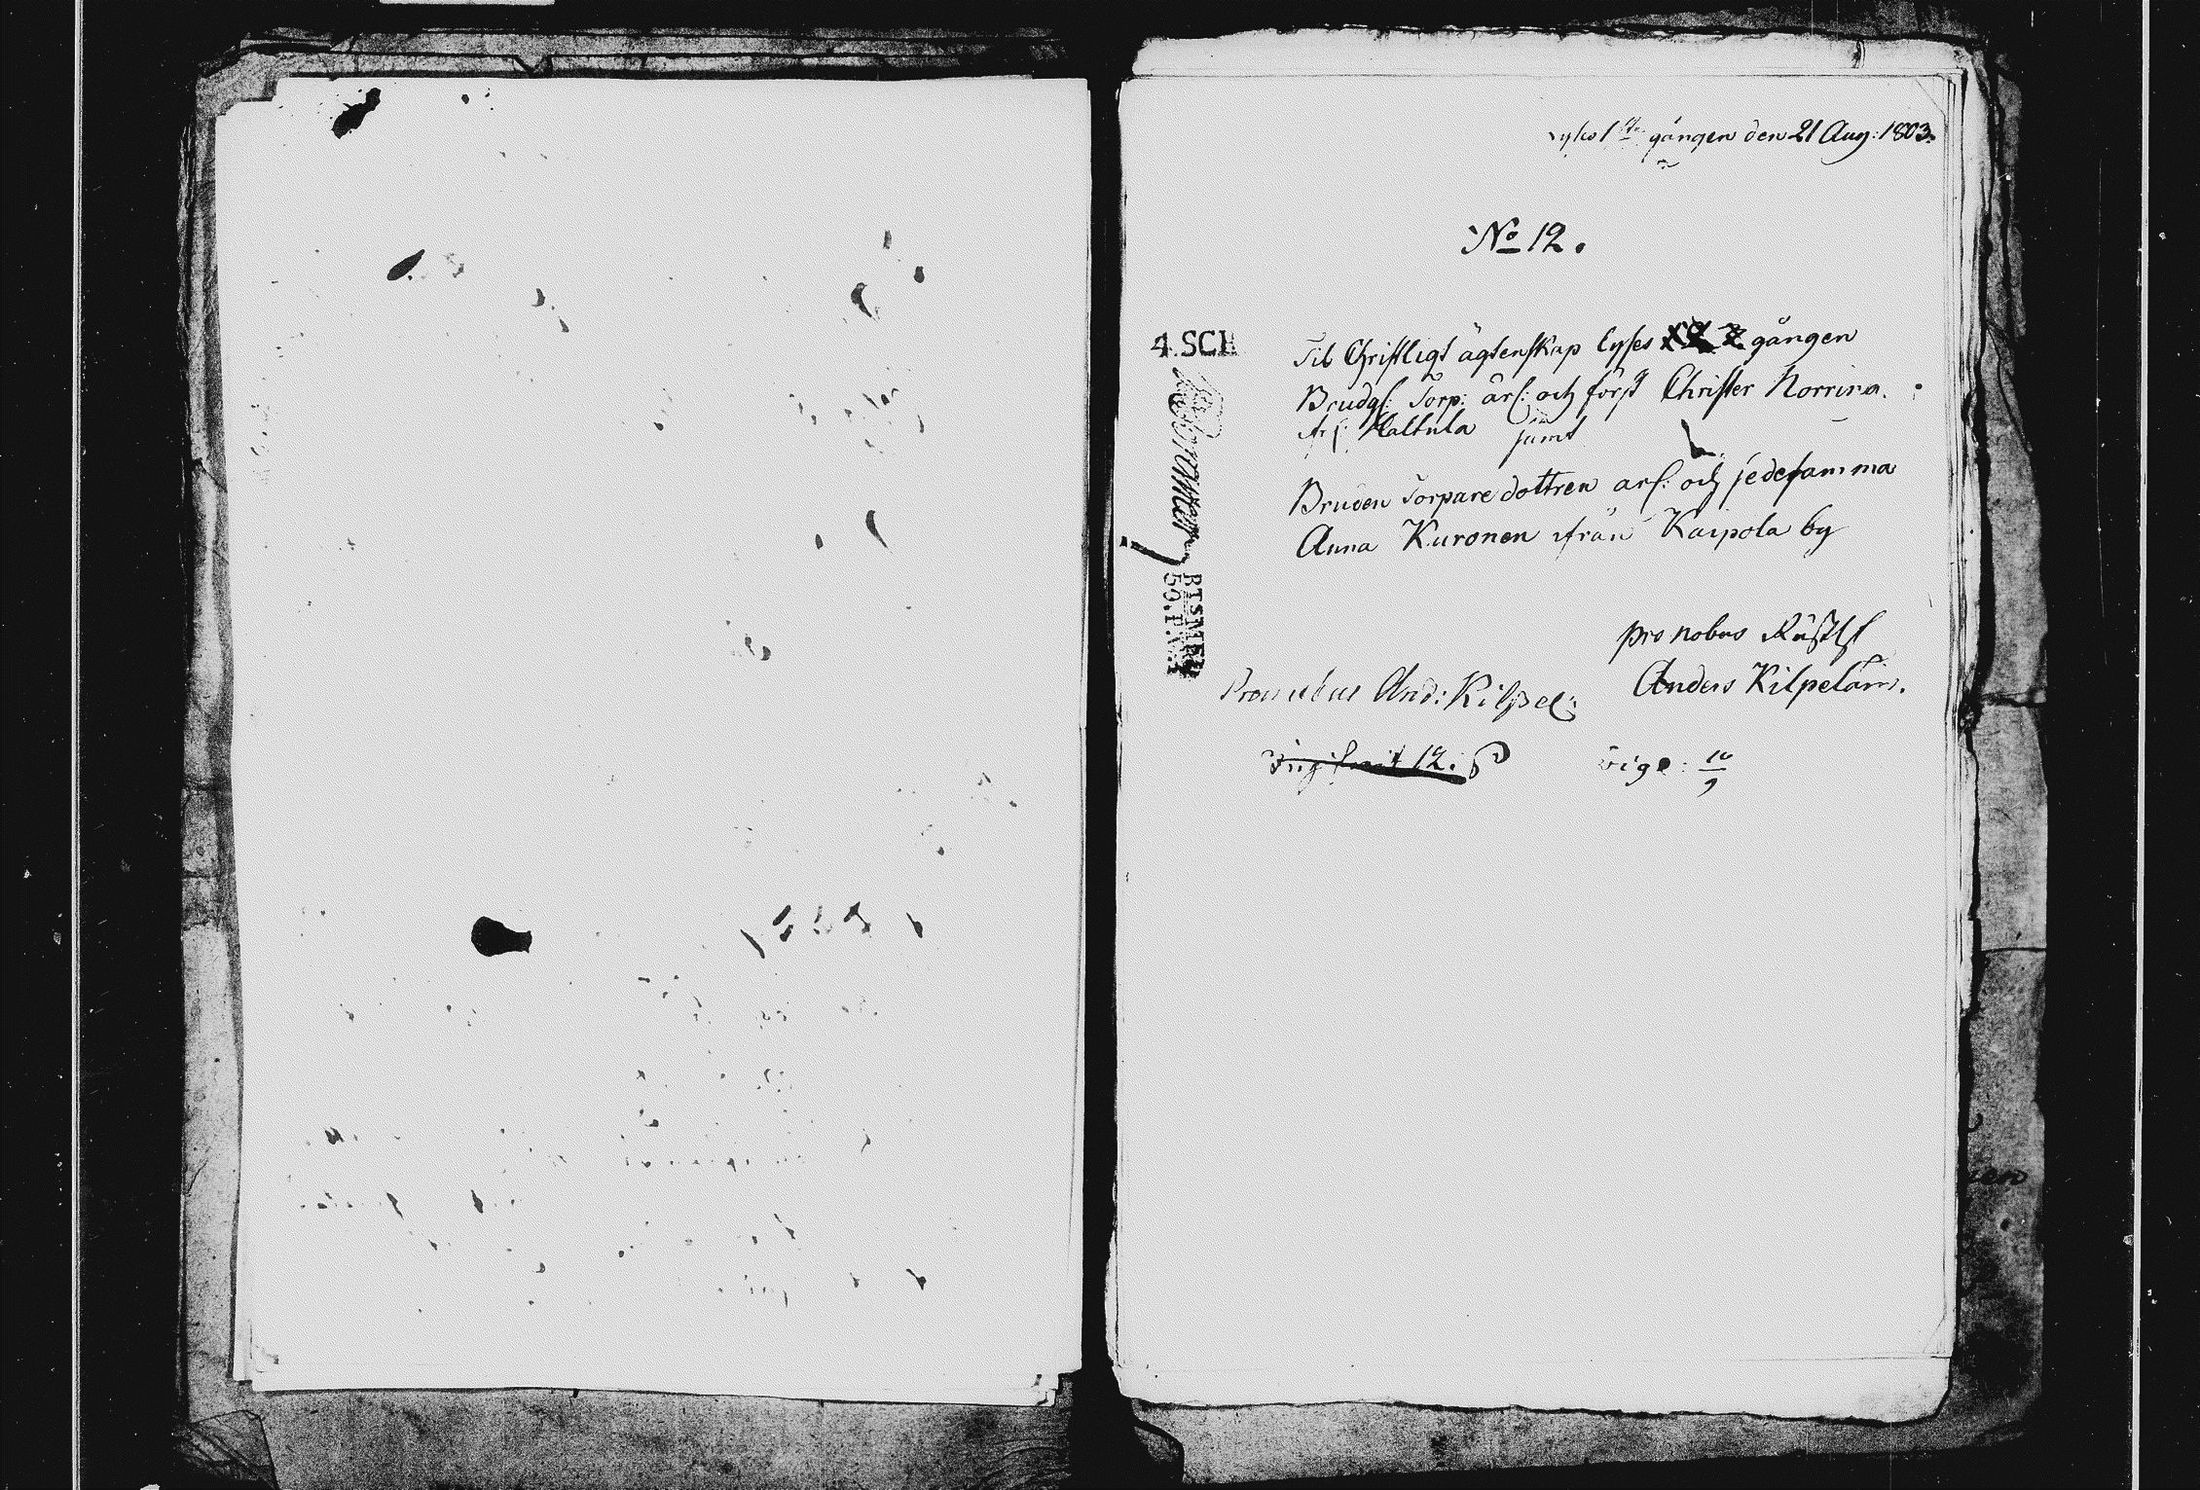 lyses 1sta gången den 21 Aug: 1803.
No 12.
4.SCH
Til Christligt ägtenskap lyses gången
Brudg: Torp: ärl: och först Christer Norrina.
Haltula jämt
Bruden Torpare dottren ärl: och sedesamma
Anna Kuronen ifrån Kaipola by
BTSMT
pro nobus
Anders Kilpeläin.
Pronubus And: Kilpel:
12.
Vigde: 10/9